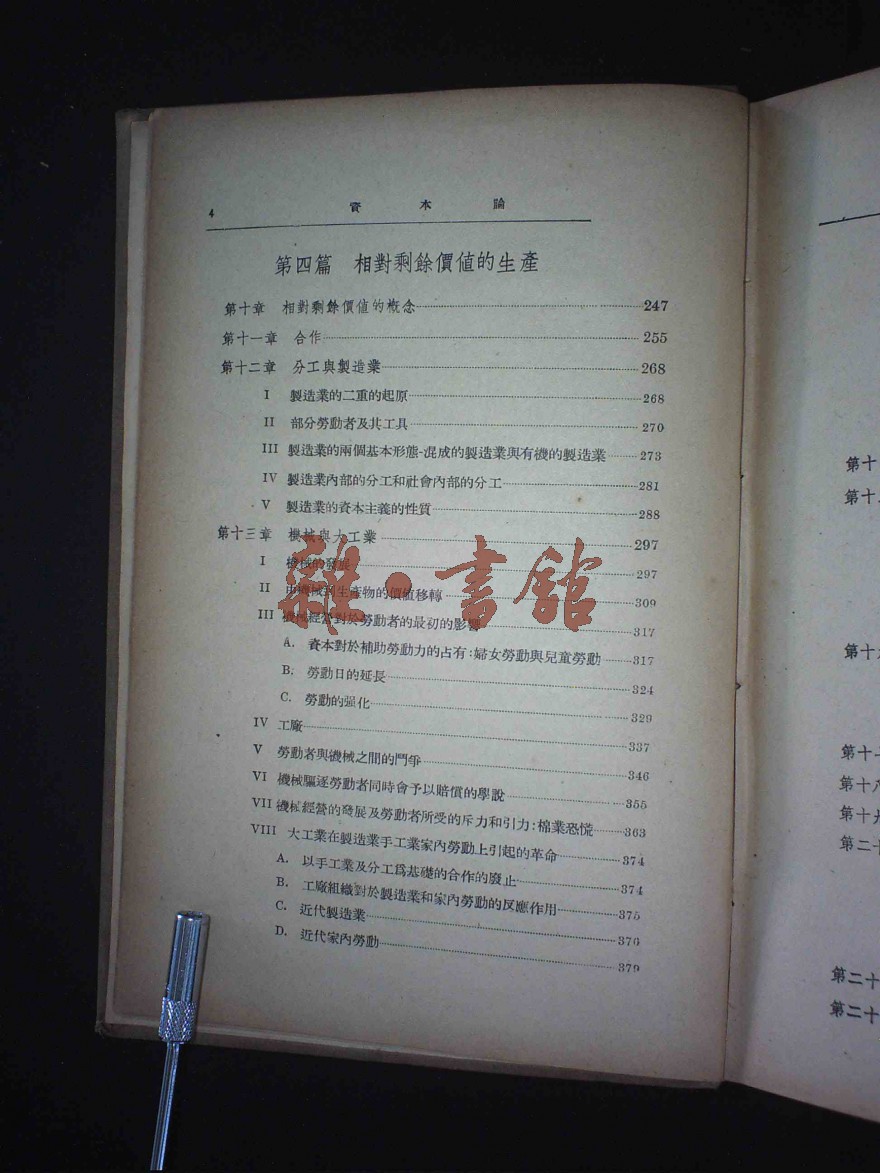 4 資本論
第四篇 相對剩餘價值的生產
第十章 相對剩餘價值的概念 247
第十一章 合作 255
第十二章 分工與製造業 268
I 製造業的二重的起原 268
II 部分勞動者及其工具 270
III 製造業的兩個基本形態-混成的製造業與有機的製造業 273
IV 製造業內部的分工和社會內部的分工 281
V 製造業的資本主義的性質 288
第十三章 機械與大工業 297
I 機械的發展 297
II 由機械到生產物的價值移轉 309
III 機械經營對於勞動者的最初的影響 317
A. 資本對於補助勞動力的占有:婦女勞動與兒童勞動 317
B. 勞動日的延長 324
C. 勞動的强化 329
IV 工廠 337
V 勞動者與機械之間的鬥爭 346
VI 機械驅逐勞動者同時會予以賠償的學說 355
VII 機械經營的發展及勞動者所受的斥力和引力:棉業恐慌 363
VIII 大工業在製造業手工業家內勞動上引起的革命 374
A. 以手工業及分工爲基礎的合作的廢止 374
B. 工廠組織對於製造業和家內勞動的反應作用 375
C. 近代製造業 376
D. 近代家內勞動 379
雜·書館
第十
第十
第十
第十
第十八
第十九
第二十
第二十
第二十